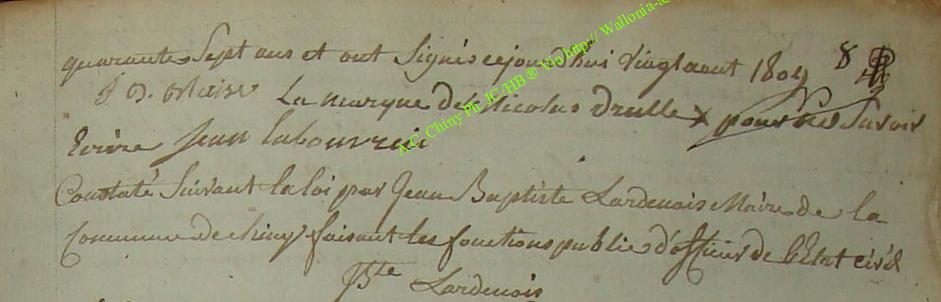 quarante Sept ans et ont Signés cejourdhui Vingt aout 1809 8
La marque de Nicolas drulle x pour ne Savoir
Ecrire Jean labouverie
Constaté Suivant la loi par Jean Baptiste Lardenois Maire de la
Commune de chiny faisant les fonctions public d'officier de l'Etat civil
JBte Lardenois
A.C. Chiny Ph. JC/HB ® Via http:// Wallonia-a